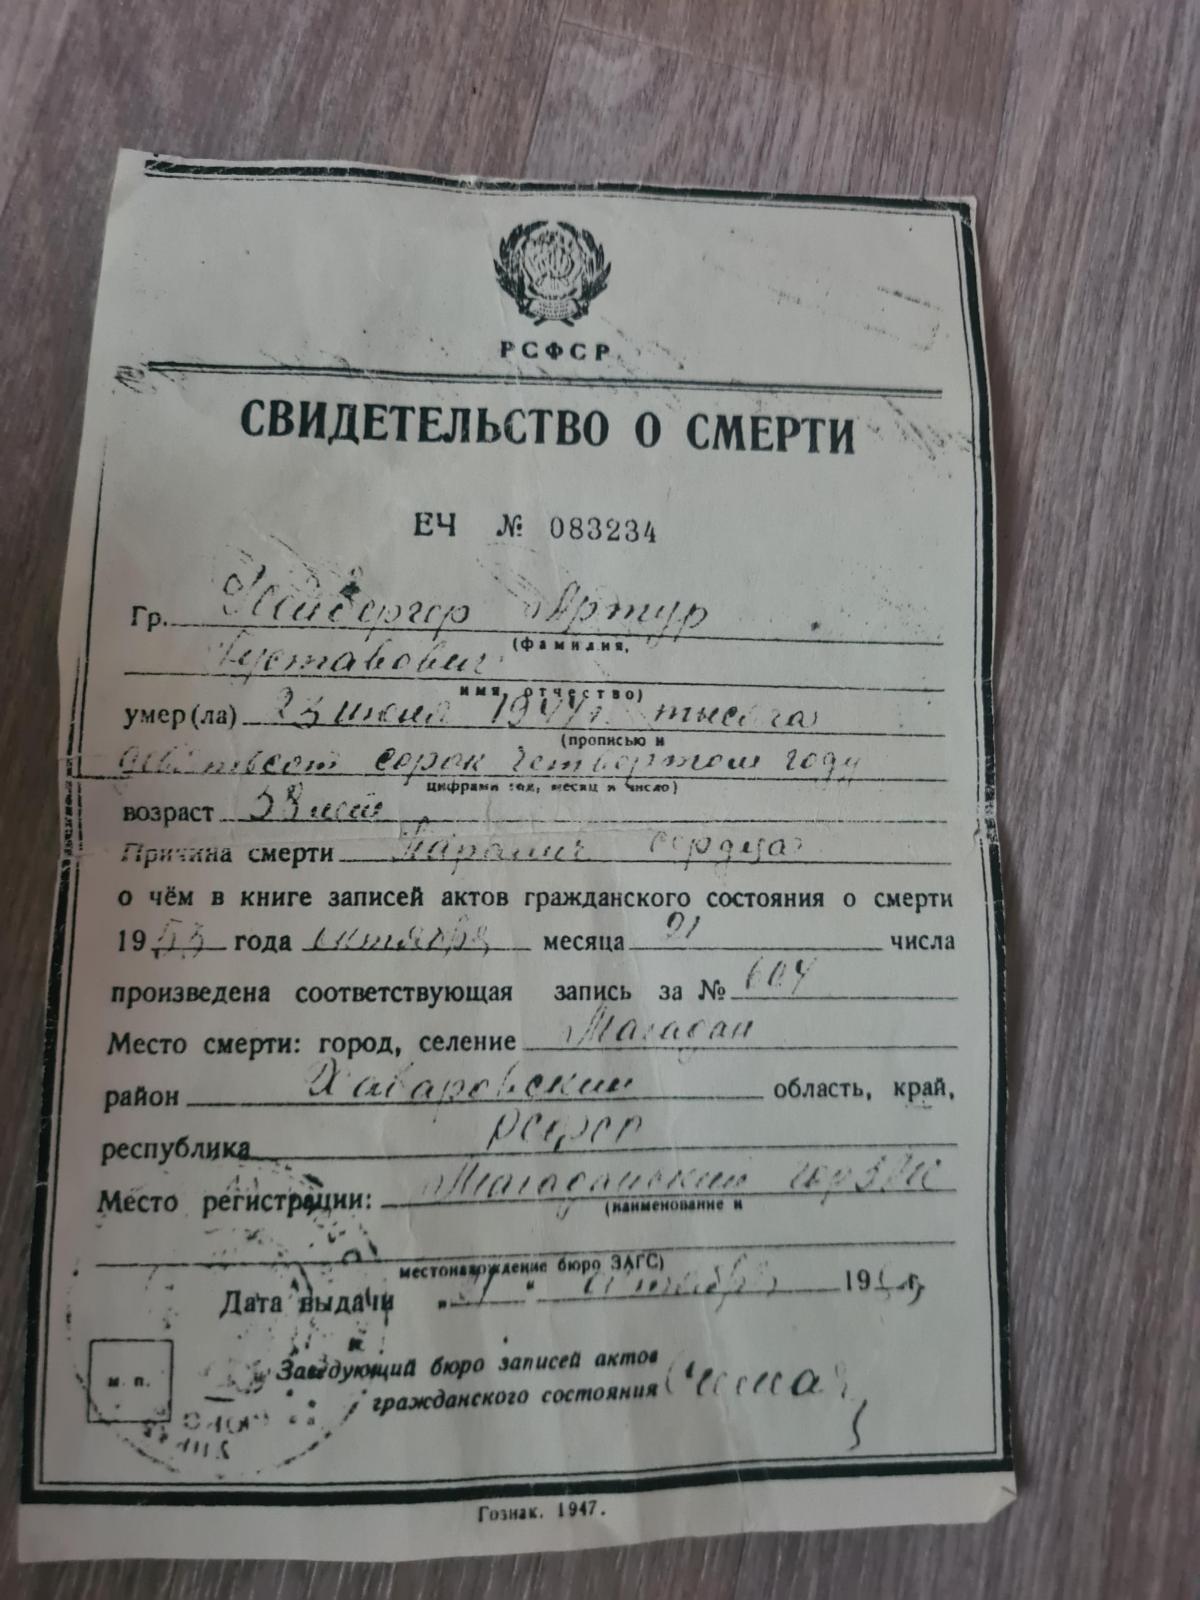 РСФСР
СВИДЕТЕЛЬСТВО О СМЕРТИ
ЕЧ № 083234
Гр. Артур
(фамилия,
Густавович
имя, отчество)
умер(ла) 23 1944 г. тысяча
(прописью и
девятьсот сорок четвертом году
цифрами год, месяц и число)
возраст 38 лет
Причина смерти Паралич сердца
о чём в книге записей актов гражданского состояния о смерти
1953 года октября месяца 21 числа
произведена соответствующая запись за № 604
Место смерти: город, селение Магадан
район Хабаровский область, край,
республика РСФСР
Место регистрации: Магаданский горЗАГС
(наименование и
местонахождение бюро ЗАГС)
Дата выдачи „21“ октября 1953 г.
м. п.
Заведующий бюро записей актов
гражданского состояния
Гознак. 1947.